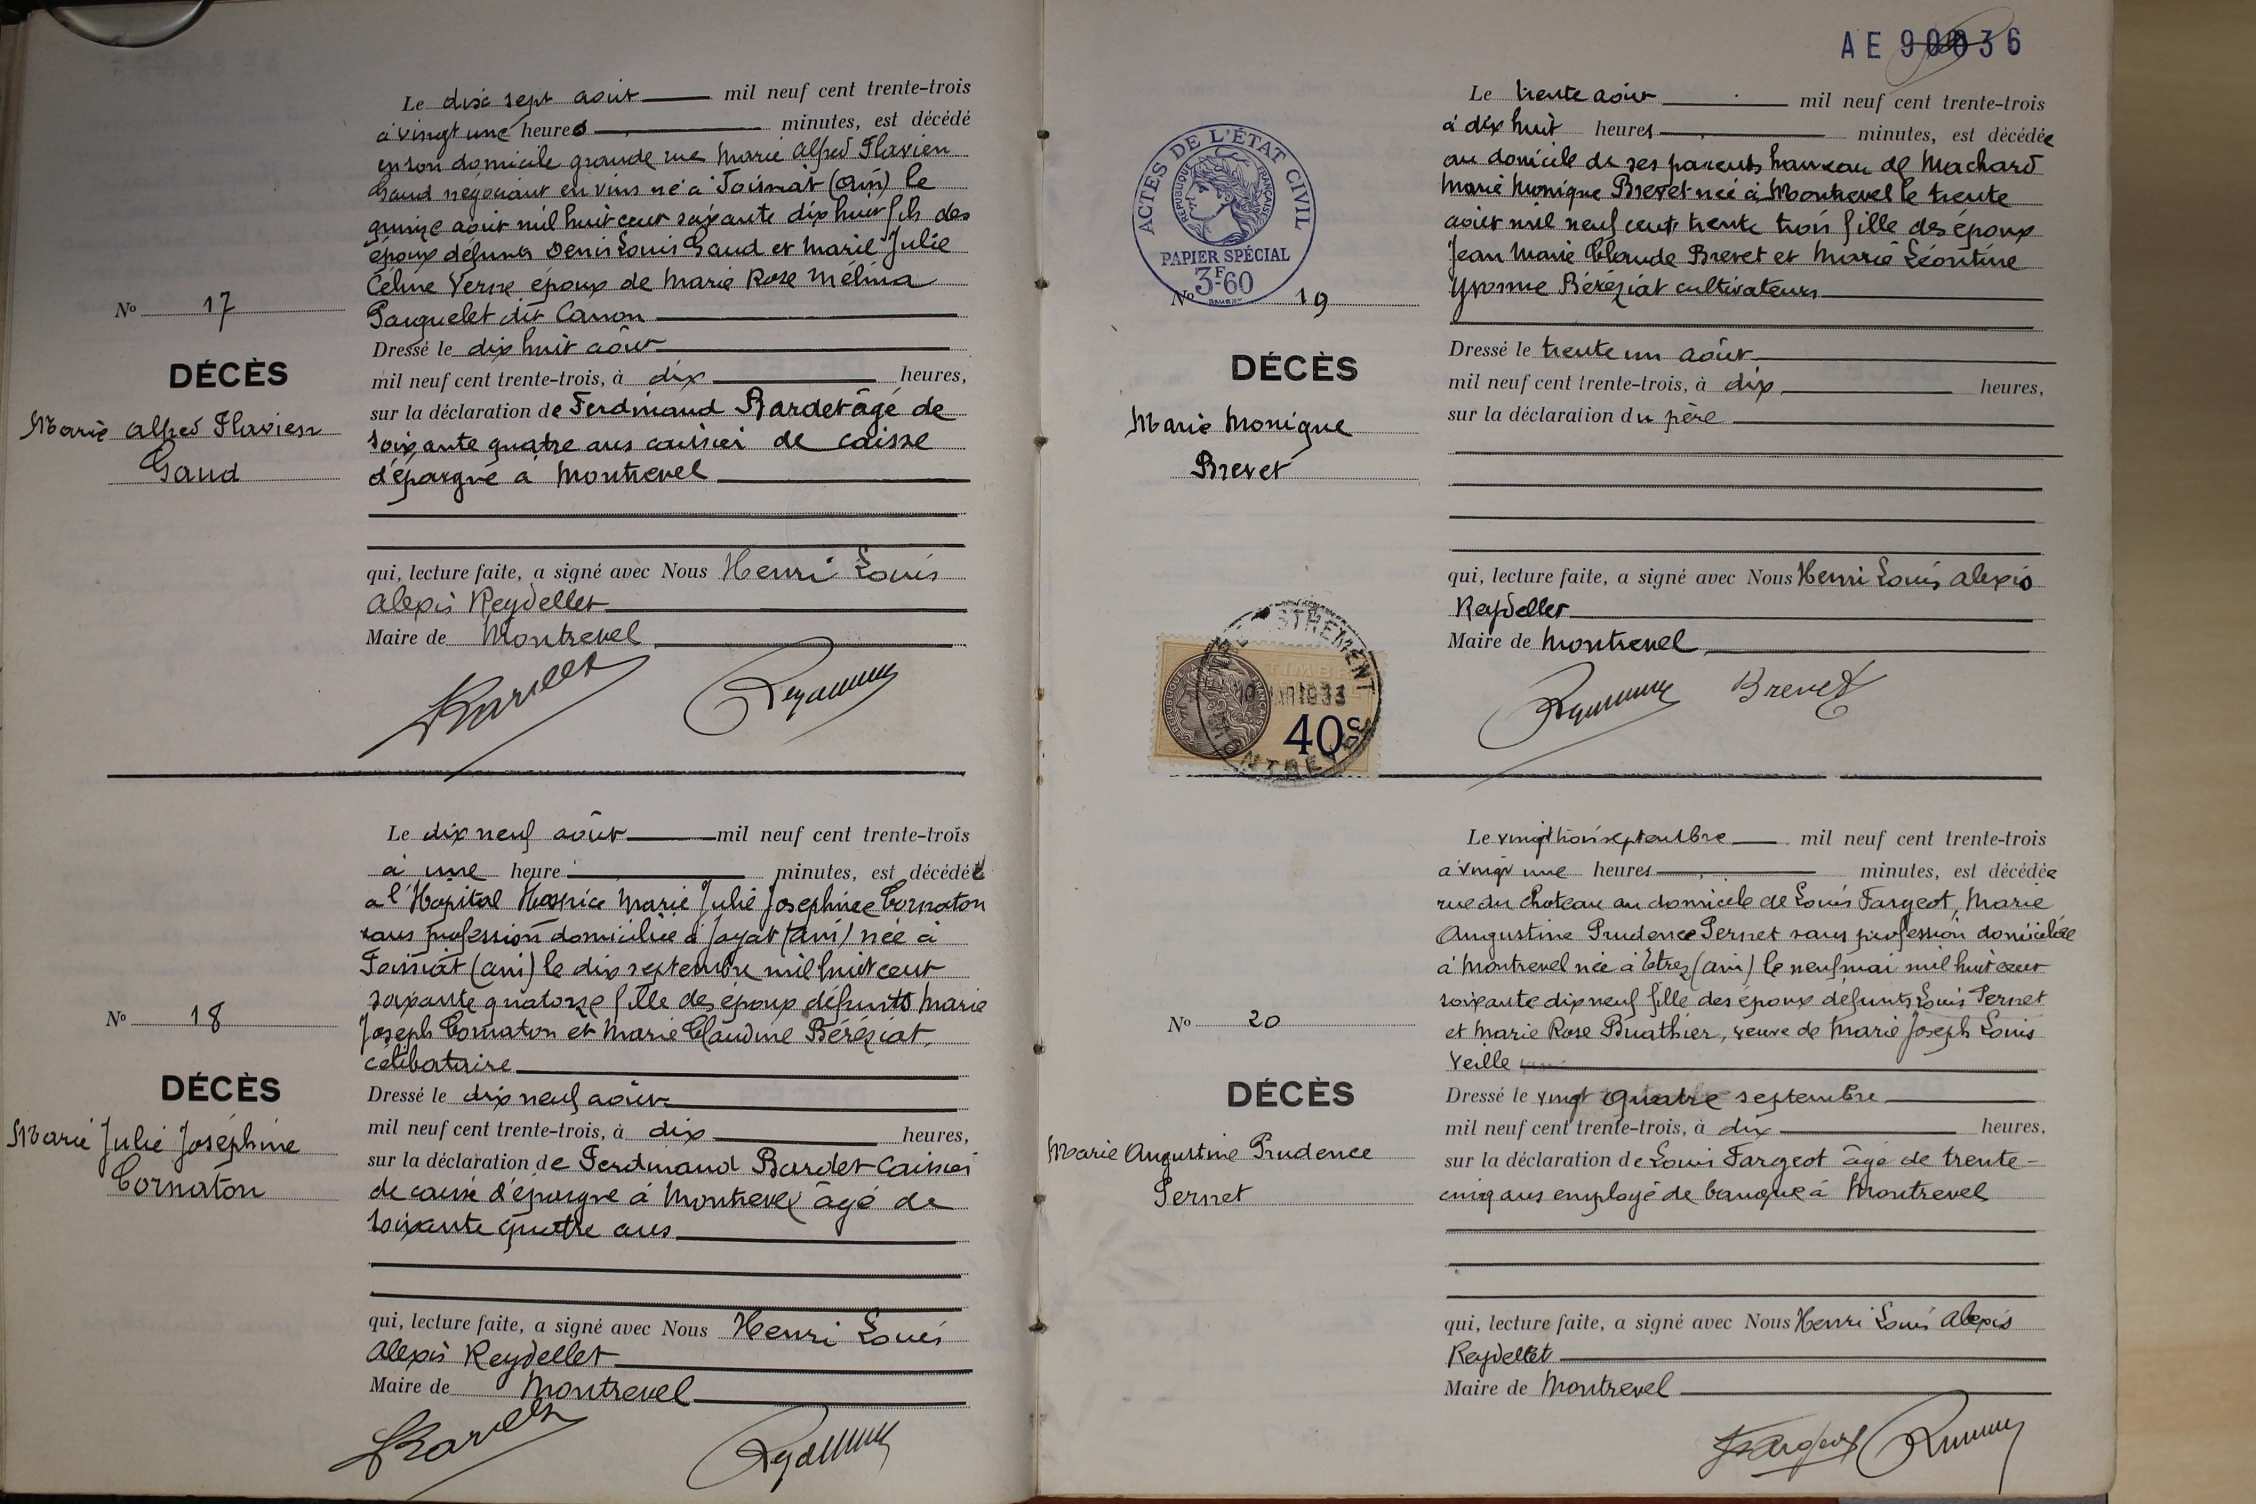 Le dix sept août mil neuf cent trente-trois
à vingt une heures minutes, est décédé
en son domicile grande rue Marie Alfred Flavien
Gaud négociant en vins né à Foissiat (Ain) le
quinze août mil huit cent soixante dix huit fils des
époux défunts Denis Louis Gaud et Marie Julie
Céline Verne époux de Marie Rose Mélina
Panguelet dit Canon
Dressé le dix huit août
mil neuf cent trente-trois, à dix heures,
sur la déclaration de Ferdinand Bardet âgé de
soixante quatre ans caissier de caisse
d'épargne à Montrevel
qui, lecture faite, a signé avec Nous Henri Louis
Alexis Reydellet
Maire de Montrevel
No 17
DÉCÈS
Marie Alfred Flavien
Gaud
Le dix neuf août mil neuf cent trente-trois
à une heure minutes, est décédée
à l'Hôpital Hospice Marie Julie Joséphine Cornaton
sans profession domiciliée à Jayat (Ain) née à
Foissiat (Ain) le dix septembre mil huit cent
soixante quatorze fille des époux défunts Marie
Joseph Cornaton et Marie Claudine Béréziat,
célibataire
Dressé le dix neuf août
mil neuf cent trente-trois, à dix heures,
sur la déclaration de Ferdinand Bardet caissier
de caisse d'épargne à Montrevel âgé de
soixante quatre ans
qui, lecture faite, a signé avec Nous Henri Louis
Alexis Reydellet
Maire de Montrevel
No 18
DÉCÈS
Marie Julie Joséphine
Cornaton
AE 90036
ACTES DE L'ÉTAT CIVIL
RÉPUBLIQUE FRANÇAISE
PAPIER SPÉCIAL
3F.60
Le trente août mil neuf cent trente-trois
à dix huit heures minutes, est décédée
au domicile de ses parents hameau de Machard
Marie Monique Brevet née à Montrevel le trente
août mil neuf cent trente trois fille des époux
Jean Marie Claude Brevet et Marie Léontine
Yvonne Béréziat cultivateurs
Dressé le trente un août
mil neuf cent trente-trois, à dix heures,
sur la déclaration du père
qui, lecture faite, a signé avec Nous Henri Louis Alexis
Reydellet
Maire de Montrevel
Brevet
No 19
DÉCÈS
Marie Monique
Brevet
1933
40c
Le vingt trois septembre mil neuf cent trente-trois
à vingt une heures minutes, est décédée
rue du Château au domicile de Louis Fargeot, Marie
Augustine Prudence Pernet sans profession domiciliée
à Montrevel née à Etrez (Ain) le neuf mai mil huit cent
soixante dix neuf fille des époux défunts Louis Pernet
et Marie Rose Buathier, veuve de Marie Joseph Louis
Veille
Dressé le vingt quatre septembre
mil neuf cent trente-trois, à dix heures,
sur la déclaration de Louis Fargeot âgé de trente-
cinq ans employé de banque à Montrevel
qui, lecture faite, a signé avec Nous Henri Louis Alexis
Reydellet
Maire de Montrevel
No 20
DÉCÈS
Marie Augustine Prudence
Pernet